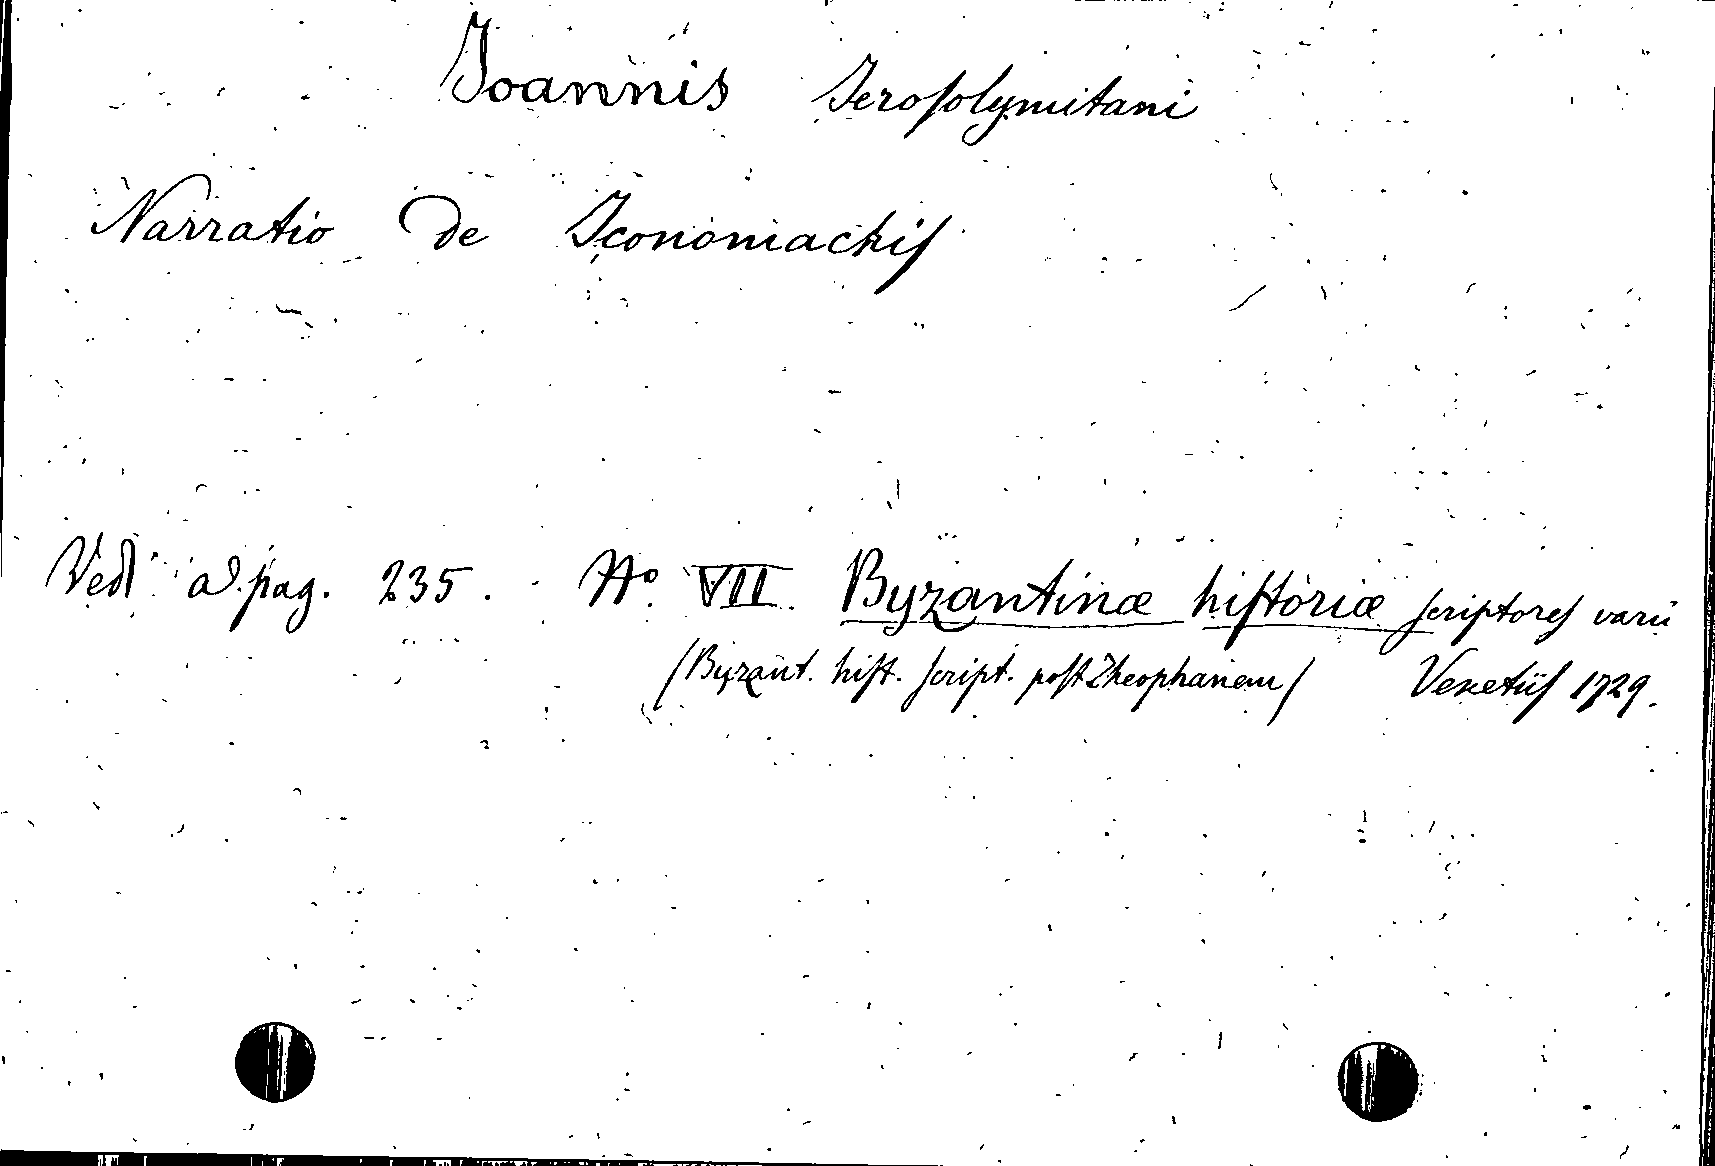 Joannis Jeroſolymitani
Narratio de Iconomachiſ
Vedi ad pag. 235. Nº VII. Byzantinæ hiſtoriæ ſcriptoreſ varii
/Byzant. hiſt. ſcript. poſt Theophanem/ Venetiiſ 1729.